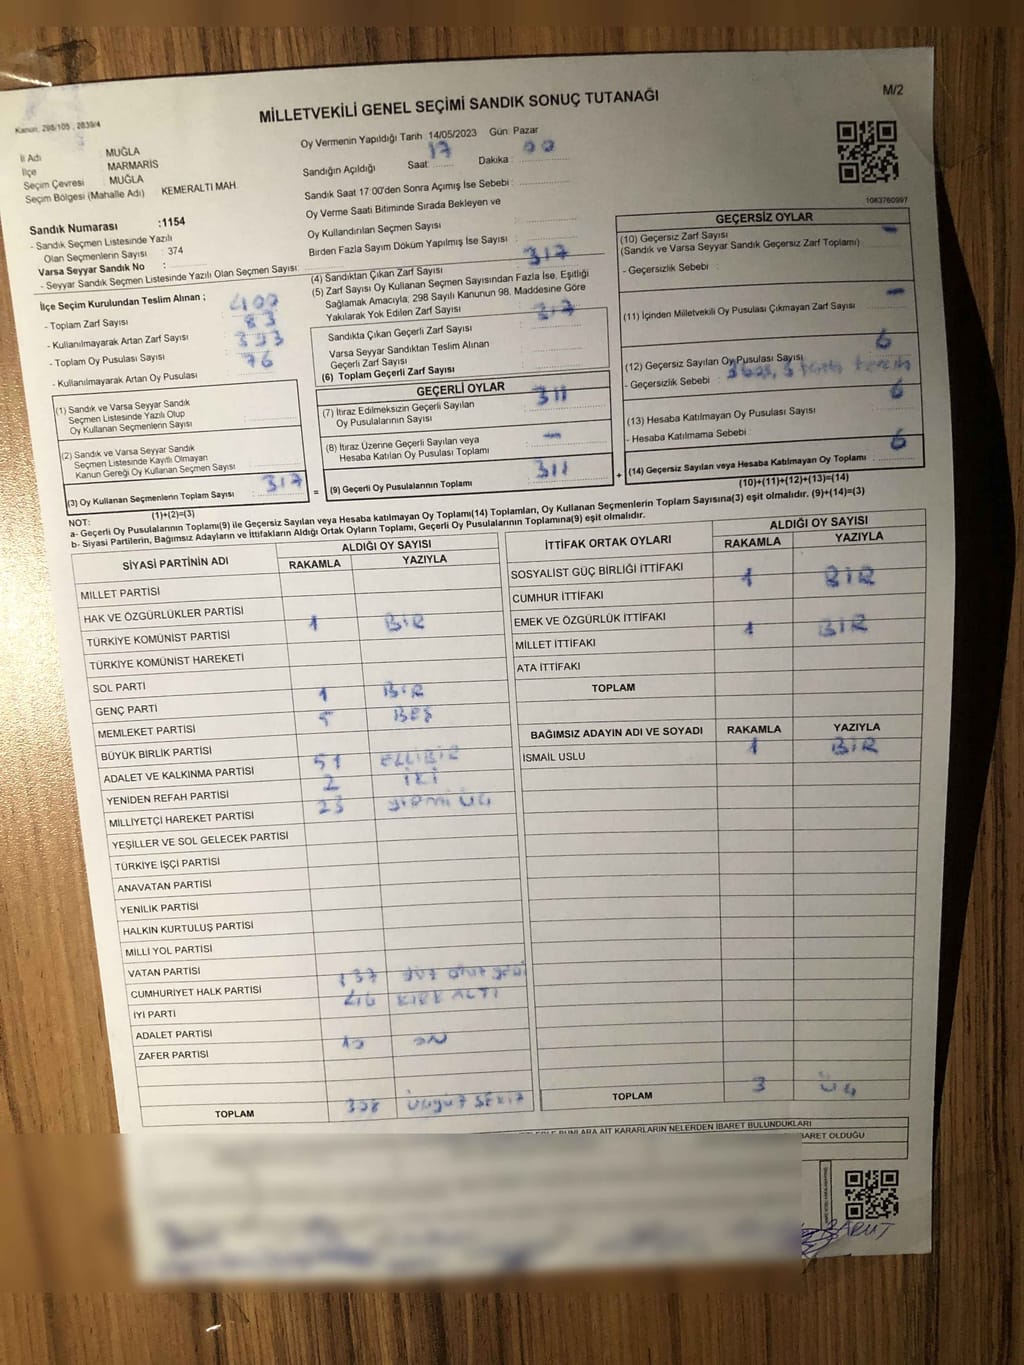 M/2
MİLLETVEKİLİ GENEL SEÇİMİ SANDIK SONUÇ TUTANAĞI
Kanun, 298/105 , 2839/4
İl Adı : MUĞLA
İlçe : MARMARİS
Seçim Çevresi : MUĞLA
Seçim Bölgesi (Mahalle Adı) KEMERALTI MAH.
Oy Vermenin Yapıldığı Tarih 14/05/2023 Gün: Pazar
Sandığın Açıldığı Saat: 17 Dakika : 00
Sandık Saat 17:00'den Sonra Açımış İse Sebebi :
Oy Verme Saati Bitiminde Sırada Bekleyen ve
Oy Kullandırılan Seçmen Sayısı :
Birden Fazla Sayım Döküm Yapılmış İse Sayısı :
1083760997
Sandık Numarası :1154
- Sandık Seçmen Listesinde Yazılı
Olan Seçmenlerin Sayısı : 374
Varsa Seyyar Sandık No :
- Seyyar Sandık Seçmen Listesinde Yazılı Olan Seçmen Sayısı:
İlçe Seçim Kurulundan Teslim Alınan ;
- Toplam Zarf Sayısı : 400
- Kullanılmayarak Artan Zarf Sayısı : 83
- Toplam Oy Pusulası Sayısı : 393
- Kullanılmayarak Artan Oy Pusulası : 76
(1) Sandık ve Varsa Seyyar Sandık
Seçmen Listesinde Yazılı Olup
Oy Kullanan Seçmenlerin Sayısı :
(2) Sandık ve Varsa Seyyar Sandık
Seçmen Listesinde Kayıtlı Olmayan
Kanun Gereği Oy Kullanan Seçmen Sayısı :
(3) Oy Kullanan Seçmenlerin Toplam Sayısı : 317
(1)+(2)=(3)
(4) Sandıktan Çıkan Zarf Sayısı : 317
(5) Zarf Sayısı Oy Kullanan Seçmen Sayısından Fazla İse, Eşitliği
Sağlamak Amacıyla; 298 Sayılı Kanunun 98. Maddesine Göre
Yakılarak Yok Edilen Zarf Sayısı :
Sandıkta Çıkan Geçerli Zarf Sayısı : 317
Varsa Seyyar Sandıktan Teslim Alınan
Geçerli Zarf Sayısı :
(6) Toplam Geçerli Zarf Sayısı :
GEÇERLİ OYLAR
(7) İtiraz Edilmeksizin Geçerli Sayılan
Oy Pusulalarının Sayısı : 311
(8) İtiraz Üzerine Geçerli Sayılan veya
Hesaba Katılan Oy Pusulası Toplamı : -
= (9) Geçerli Oy Pusulalarının Toplamı : 311 +
GEÇERSİZ OYLAR
(10) Geçersiz Zarf Sayısı : -
(Sandık ve Varsa Seyyar Sandık Geçersiz Zarf Toplamı)
- Geçersizlik Sebebi :
(11) İçinden Milletvekili Oy Pusulası Çıkmayan Zarf Sayısı : -
(12) Geçersiz Sayılan Oy Pusulası Sayısı : 6
- Geçersizlik Sebebi : 3 boş, 3
(13) Hesaba Katılmayan Oy Pusulası Sayısı : 6
- Hesaba Katılmama Sebebi :
(14) Geçersiz Sayılan veya Hesaba Katılmayan Oy Toplamı : 6
(10)+(11)+(12)+(13)=(14)
NOT:
a- Geçerli Oy Pusulalarının Toplamı(9) ile Geçersiz Sayılan veya Hesaba katılmayan Oy Toplamı(14) Toplamları, Oy Kullanan Seçmenlerin Toplam Sayısına(3) eşit olmalıdır. (9)+(14)=(3)
b- Siyasi Partilerin, Bağımsız Adayların ve İttifakların Aldığı Ortak Oyların Toplamı, Geçerli Oy Pusulalarının Toplamına(9) eşit olmalıdır.
SİYASİ PARTİNİN ADI ALDIĞI OY SAYISI
RAKAMLA YAZIYLA
MİLLET PARTİSİ
HAK VE ÖZGÜRLÜKLER PARTİSİ
TÜRKİYE KOMÜNİST PARTİSİ 1 BİR
TÜRKİYE KOMÜNİST HAREKETİ
SOL PARTİ
GENÇ PARTİ 1 BİR
MEMLEKET PARTİSİ 5 BEŞ
BÜYÜK BİRLİK PARTİSİ
ADALET VE KALKINMA PARTİSİ 51 ELLİBİR
YENİDEN REFAH PARTİSİ 2 İKİ
MİLLİYETÇİ HAREKET PARTİSİ 23 YİRMİ ÜÇ
YEŞİLLER VE SOL GELECEK PARTİSİ
TÜRKİYE İŞÇİ PARTİSİ
ANAVATAN PARTİSİ
YENİLİK PARTİSİ
HALKIN KURTULUŞ PARTİSİ
MİLLİ YOL PARTİSİ
VATAN PARTİSİ
CUMHURİYET HALK PARTİSİ 137 YÜZ OTUZ YEDİ
İYİ PARTİ 46 KIRK ALTI
ADALET PARTİSİ
ZAFER PARTİSİ 10 ON
TOPLAM 308 ÜÇYÜZ SEKİZ
İTTİFAK ORTAK OYLARI ALDIĞI OY SAYISI
RAKAMLA YAZIYLA
SOSYALİST GÜÇ BİRLİĞİ İTTİFAKI
CUMHUR İTTİFAKI 1 BİR
EMEK VE ÖZGÜRLÜK İTTİFAKI
MİLLET İTTİFAKI 1 BİR
ATA İTTİFAKI
TOPLAM
BAĞIMSIZ ADAYIN ADI VE SOYADI RAKAMLA YAZIYLA
İSMAİL USLU 1 BİR
TOPLAM 3 ÜÇ
BUNLARA AİT KARARLARIN NELERDEN İBARET BULUNDUKLARI
İBARET OLDUĞU
BARUT